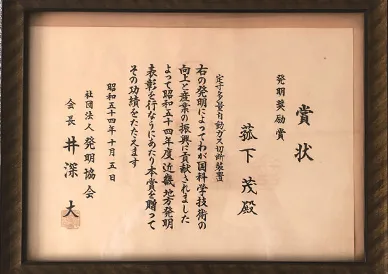 賞状
発明奨励賞
菰下茂殿
定寸多量自動ガス切断装置
右の発明によってわが国科学技術の
向上と産業の振興に貢献されました
よって昭和五十四年度近畿地方発明
表彰を行なうにあたり本賞を贈って
その功績をたたえます
昭和五十四年十月五日
社団法人発明協会
会長井深大